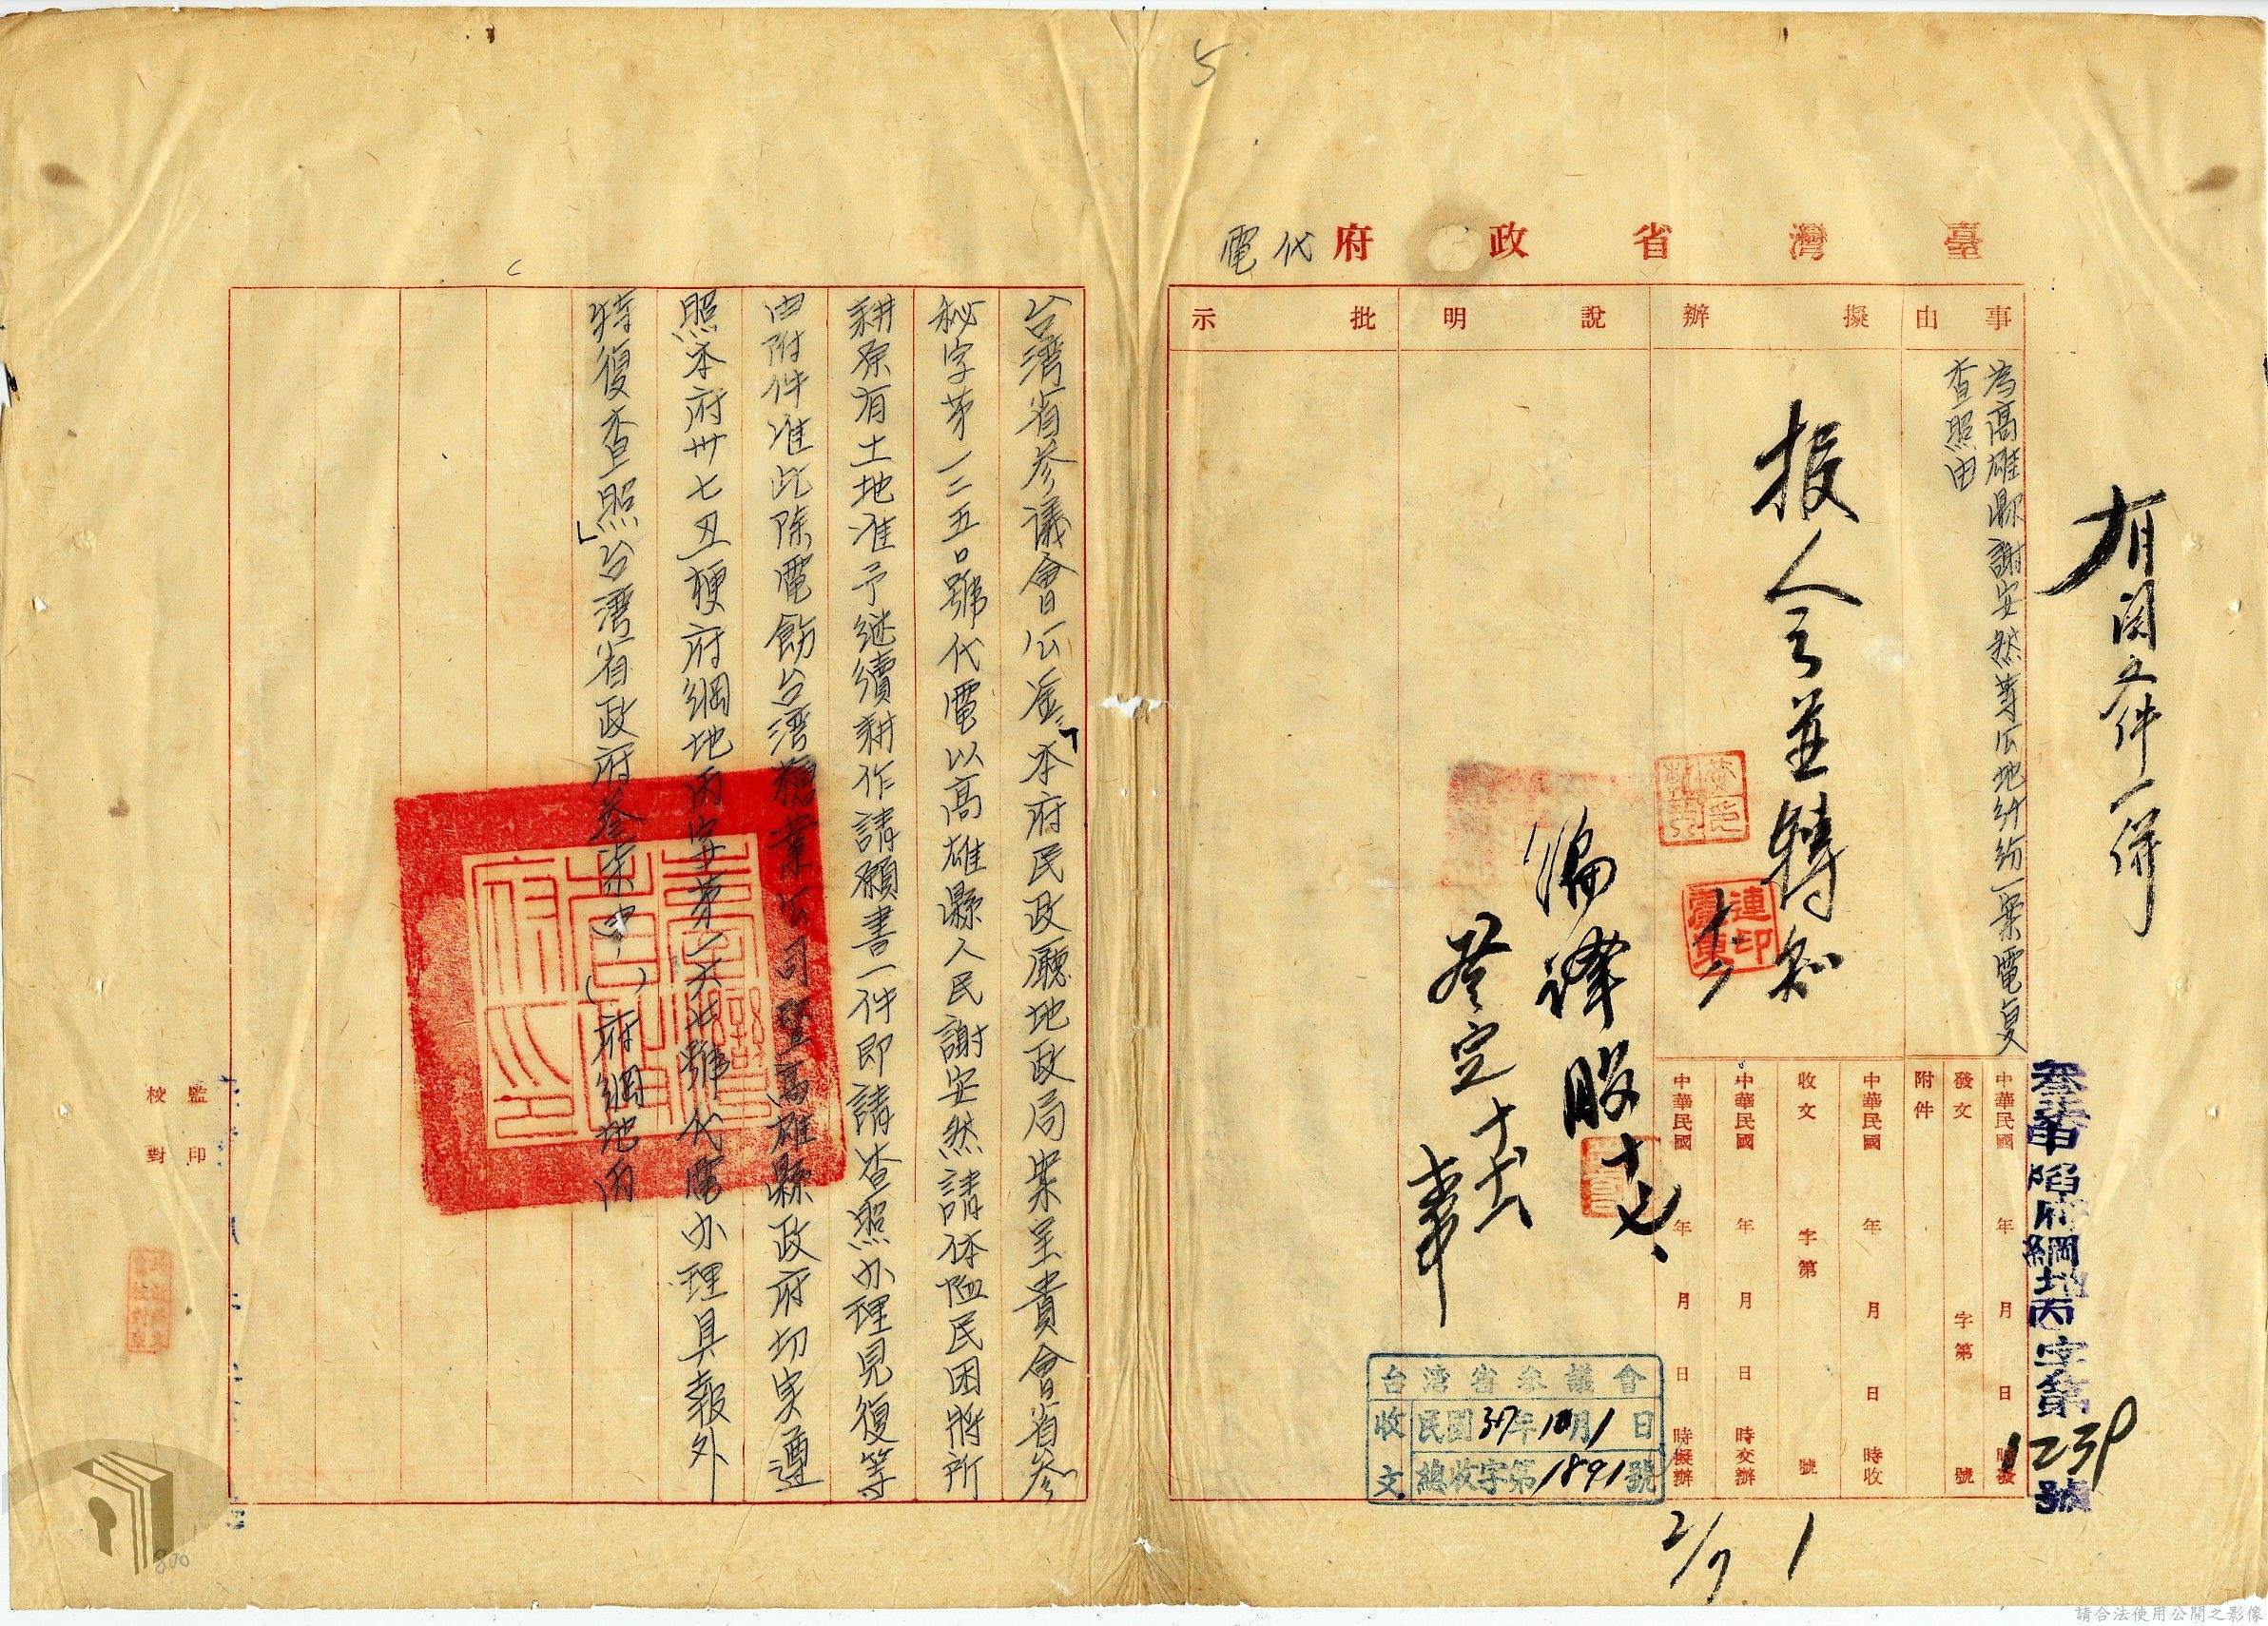 5
臺灣省政府代電
事由
擬辦
說明
批示
為高雄縣謝安然等公地糾紛一案電復
查照由
有関文件一併
報人之並轉知
編譯股十、七、
中華民國 年 月 日 時發
發文 字第 號
附件
中華民國 年 月 日 時收
收文 字第 號
中華民國 年 月 日 時交辦
中華民國 年 月 日 時擬辦
府綱地丙字第1239號
台灣省參議會
收文
民國37年10月1日
總收字第1891號
2/7
1
台湾省参議會公鑒「本府民政廳地政局案呈貴會省参
秘字第一二五〇號代電以高雄縣人民謝安然請体恤民困將所
耕原有土地准予継續耕作請願書一件即請查照办理見復等
由附件准此除電飭台湾糖業公司暨高雄縣政府切実遵
照本府卅七丑梗府綱地丙字第一六七號代電办理具報外
特復查照」台湾省政府叁柒申( )府綱地丙
監印
校對
800
請合法使用公開之影像